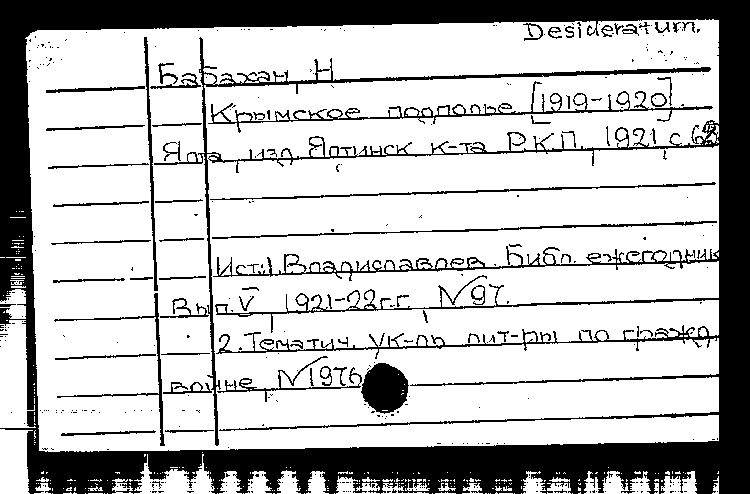 Desideratum.
Бабахан, Н
Крымское подполье [1919-1920].
Ялта, изд. Ялтинск к-та Р.К.П., 1921, с.
Ист:1. Владиславлев. Библ. ежегодник
Вып. V, 1921-22г.г., №97.
2. Тематич. ук-ль лит-ры по гражд.
войне, №1976